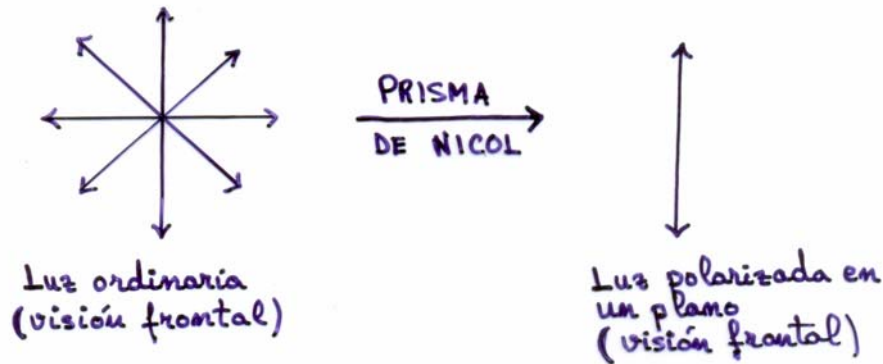 PRISMA
DE NICOL
Luz ordinaria
(visión frontal)
Luz polarizada en
un plano
(visión frontal)